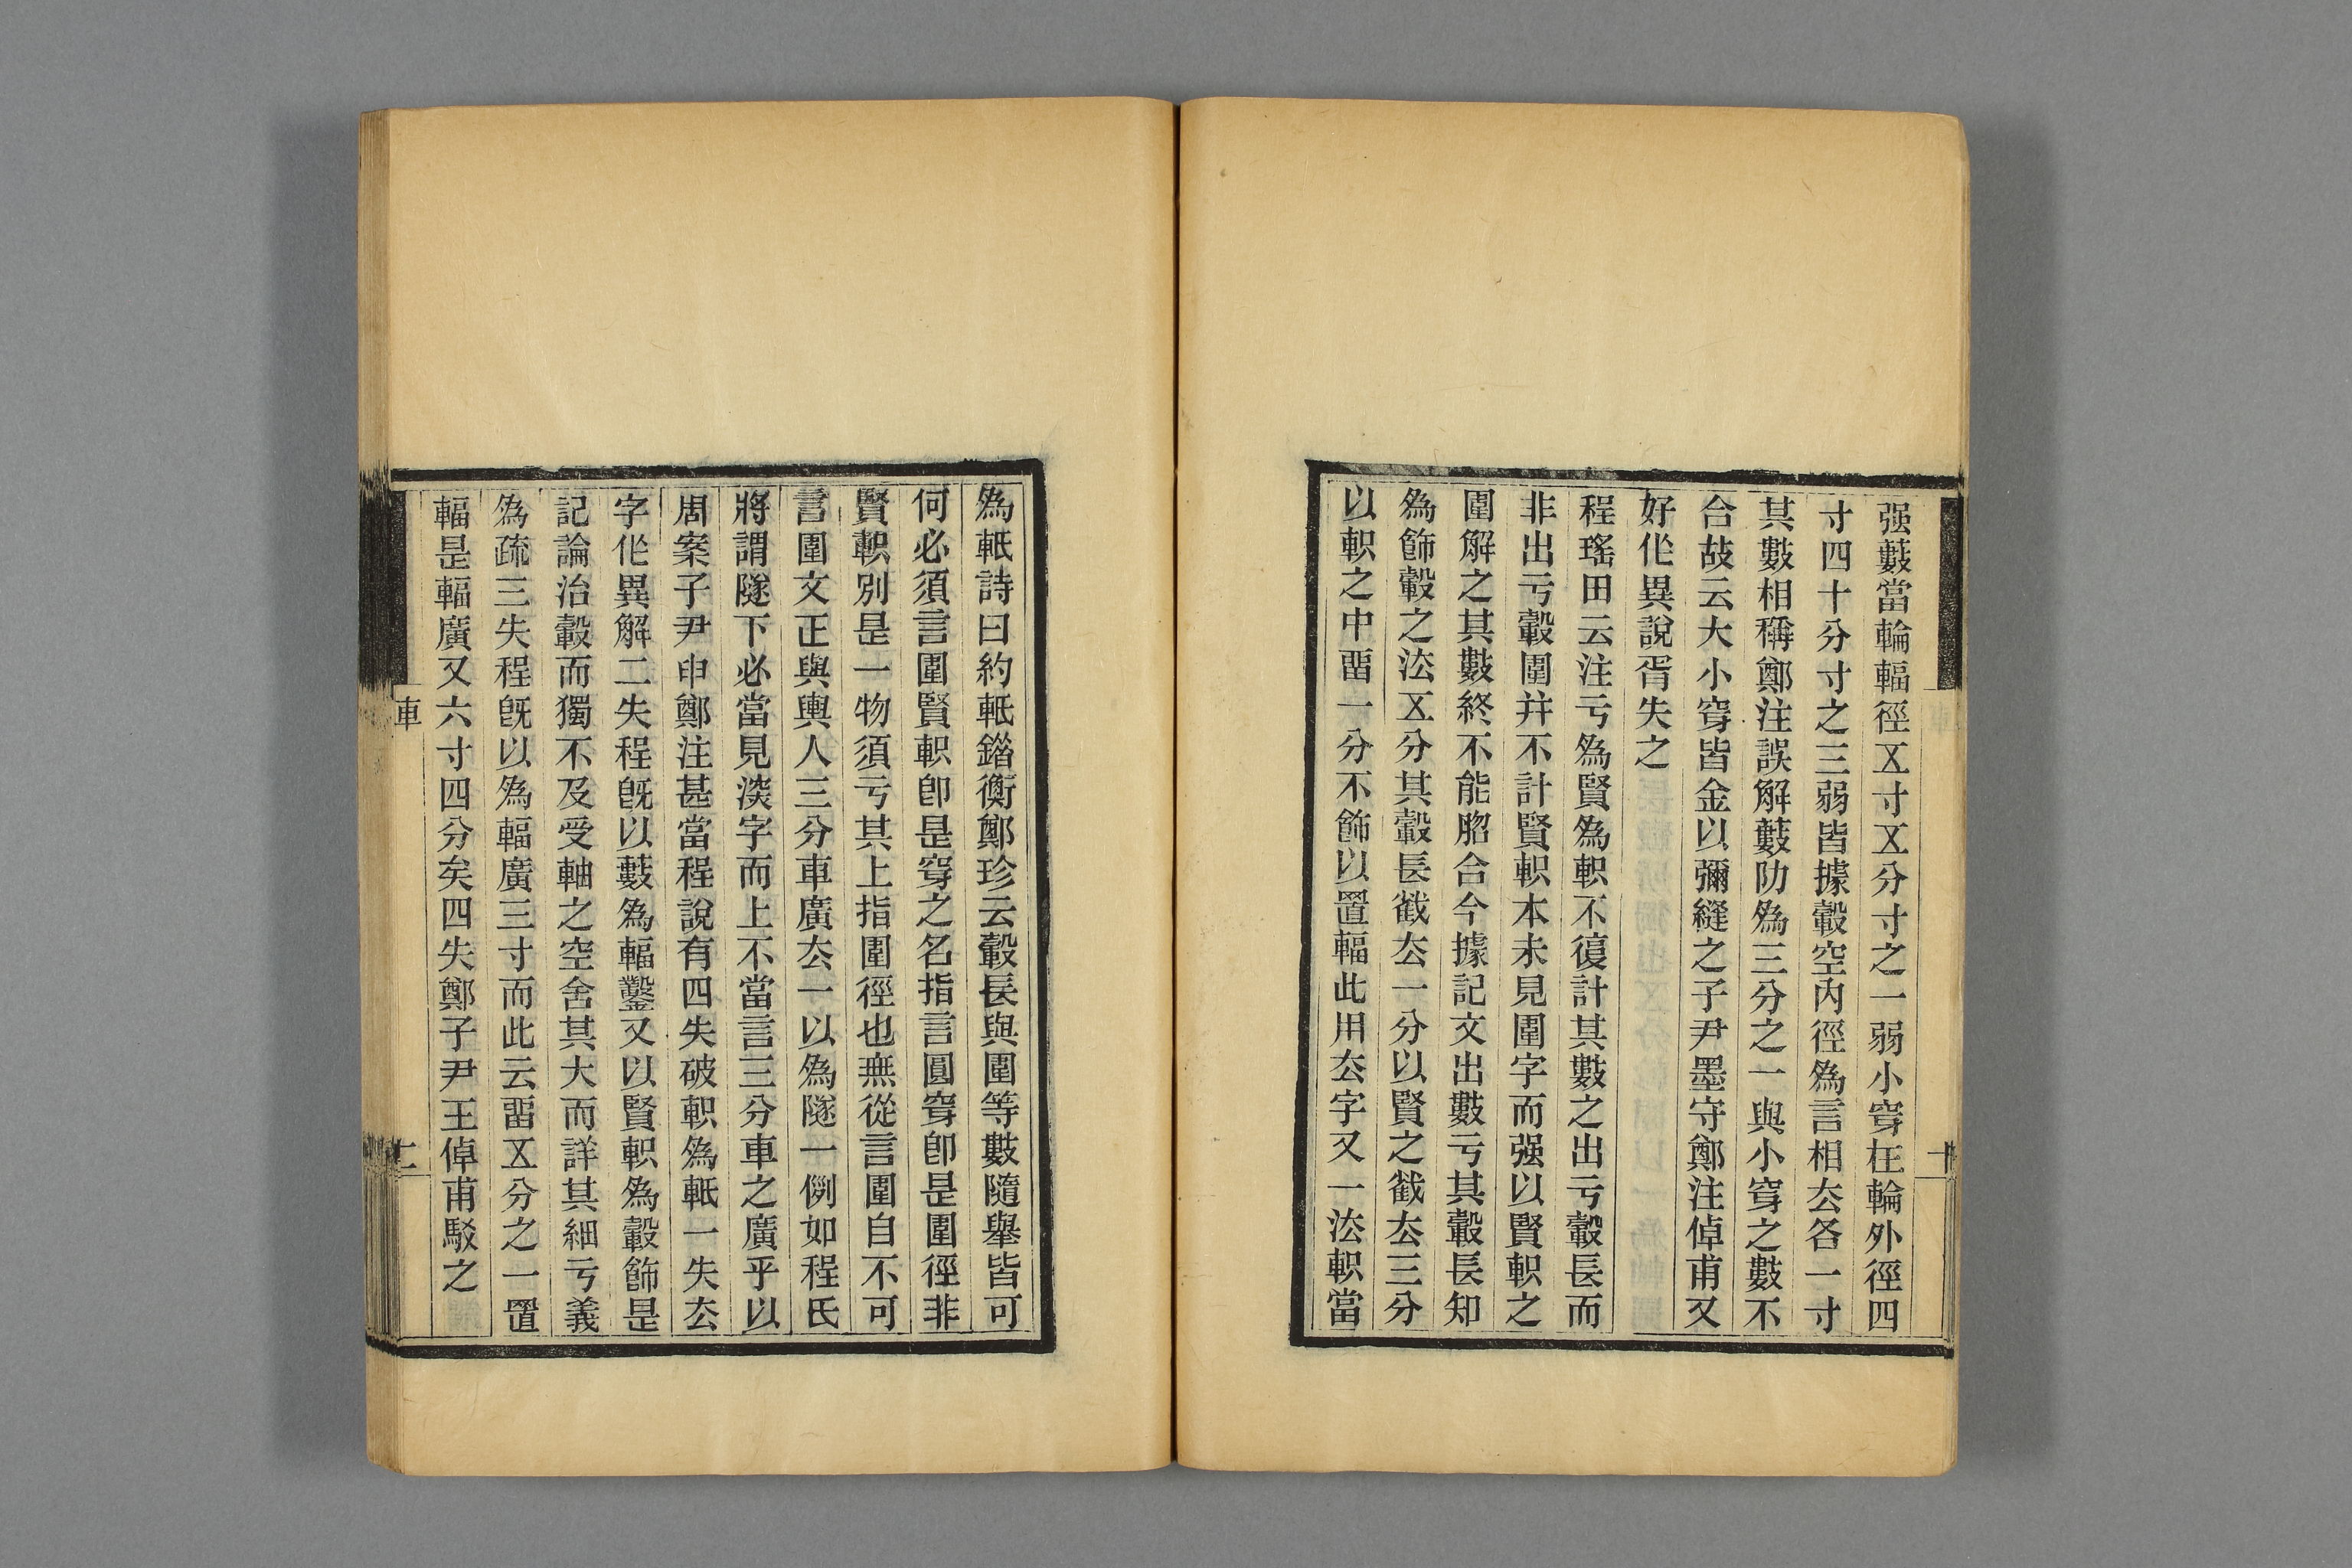 强藪當輪輻徑㐅寸㐅分寸之一弱小穿在輪外徑四
寸四十分寸之三弱皆據轂空內徑為言相厺各一寸
其數相稱鄭注誤解藪阞為三分之一與小穿之數不
合故云大小穿皆金以彌縫之子尹墨守鄭注倬甫又
好作異說胥失之
程瑤田云注亏為賢為軹不復計其數之出亏轂長而
非出亏轂圍幷不計賢軹本未見圍字而强以賢軹之
圍解之其數終不能脗合今據記文出數亏其轂長知
為飾轂之法㐅分其轂長䤋厺一分以賢之䤋厺三分
以軹之中畱一分不飾以置輻此用厺字又一法軹當
為軝詩曰約軝錯衡鄭珍云轂長與圍等數隨舉皆可
何必須言圍賢軹卽是穿之名指言圓穿卽是圍徑非
賢軹別是一物須亏其上指圍徑也無從言圍自不可
言圍文正與輿人三分車廣厺一以為隧一例如程氏
將謂隧下必當見深字而上不當言三分車之廣乎以
周案子尹申鄭注甚當程說有四失破軹為軝一失厺
字作異解二失程旣以藪為輻鑿又以賢軹為轂飾是
記論治轂而獨不及受軸之空舍其大而詳其細亏義
為疏三失程旣以為輻廣三寸而此云畱㐅分之一置
輻是輻廣又六寸四分矣四失鄭子尹王倬甫駁之
車